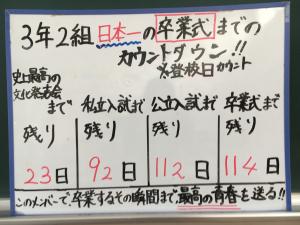 3年2組 日本一の卒業式までの
カウントダウン!!
※登校日カウント
史上最高の
文化発表会
まで
残り
23日
私立入試まで
残り
92日
公立入試まで
残り
112日
卒業式まで
残り
114日
このメンバーで、卒業するその瞬間まで最高の青春を送る!!